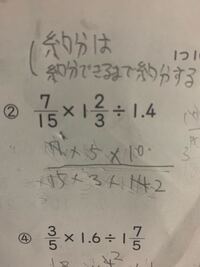 約分は
約分できるまで約分する
② 7/15 × 1 2/3 ÷ 1.4
× 5 × 10
15 × 3 × 14 2
④ 3/5 × 1.6 ÷ 1 7/5